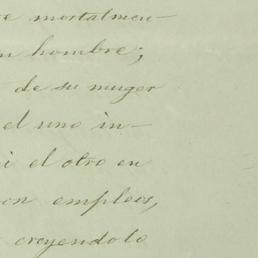 re mortalmen-
un hombre;
de su muger
el uno in-
ni el otro en
con empleos,
creyendolo